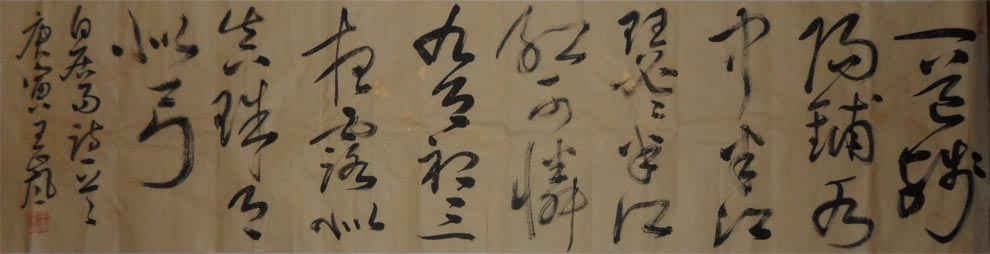 一道残
阳铺水
中半江
瑟瑟半江
红可怜
九月初三
夜露似
真珠月
似弓
白居易诗一首
庚寅王